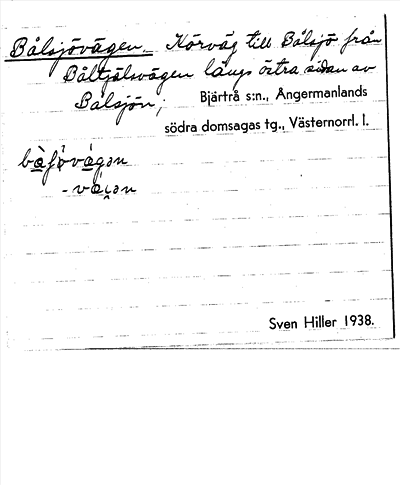 Bålsjövägen. Körväg till Bålsjö från
Båltjälsvägen längs östra sidan av
Bålsjön;
Bjärtrå s:n., Ångermanlands
södra domsagas tg., Västernorrl. l.
Sven Hiller 1938.